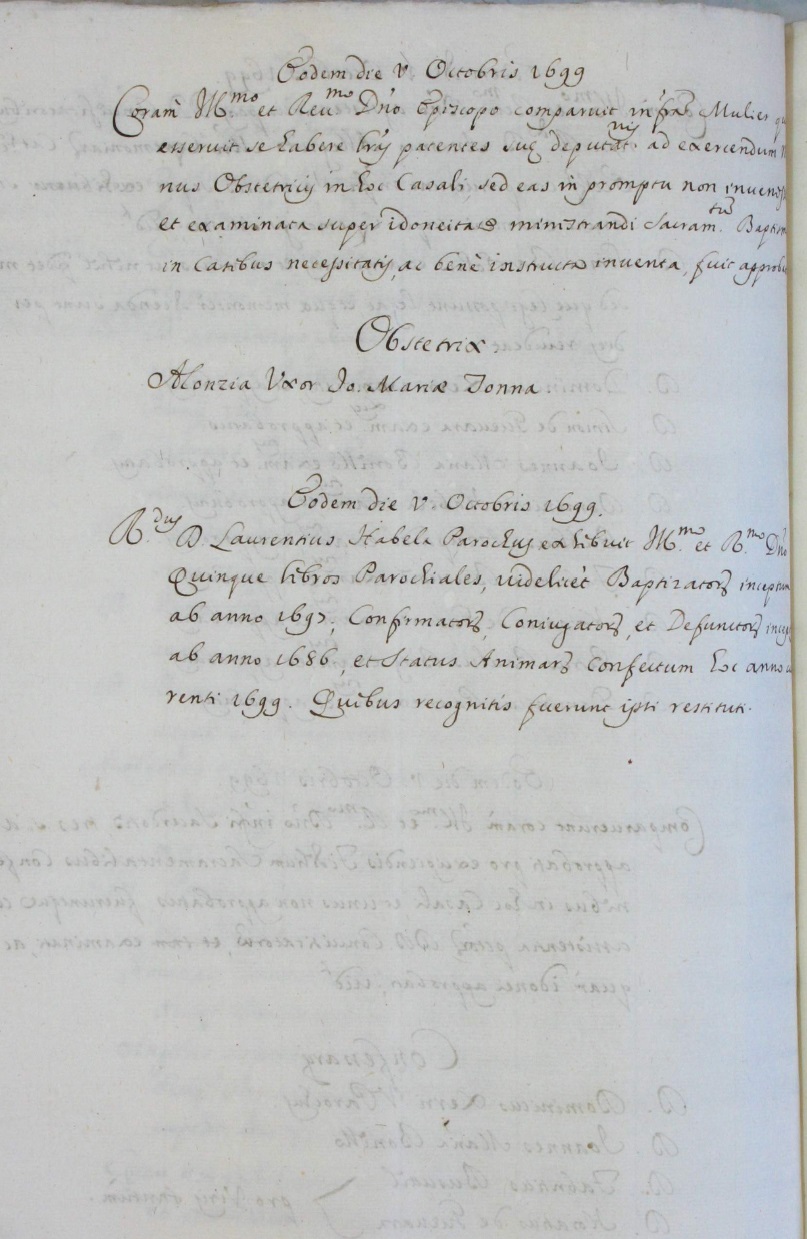 Eodem die V Octobris 1699
Coram Ill.mo et Reu.mo Dno Episcopo comparuit infra Mulier
asseruit se habere lrãs patentes suę deputat.nis ad exercendum
nus Obstetricis in hoc Casali, sed eas in promptu non
et examinata super idoneitate ministrandi Sacram.tũ
in casibus necessitatis, ac benè instructa inuenta, fuit
Obstetrix.
Alonzia Vxor Jo. Mariæ Tonna
Eodem die V. Octobris 1699.
R.dus D. Laurentius Habela Parochus exhibuit Ill.mo et R.mo Dno
Quinque libros Parochiales, uidelicèt Baptizatorũ
ab anno 1697, Confirmatorũ, Coniugatorũ, et Defunctorũ
ab anno 1686, et Status Animarũ confectum hoc anno
renti 1699. Quibus recognitis fuerunt ipsi restituti.